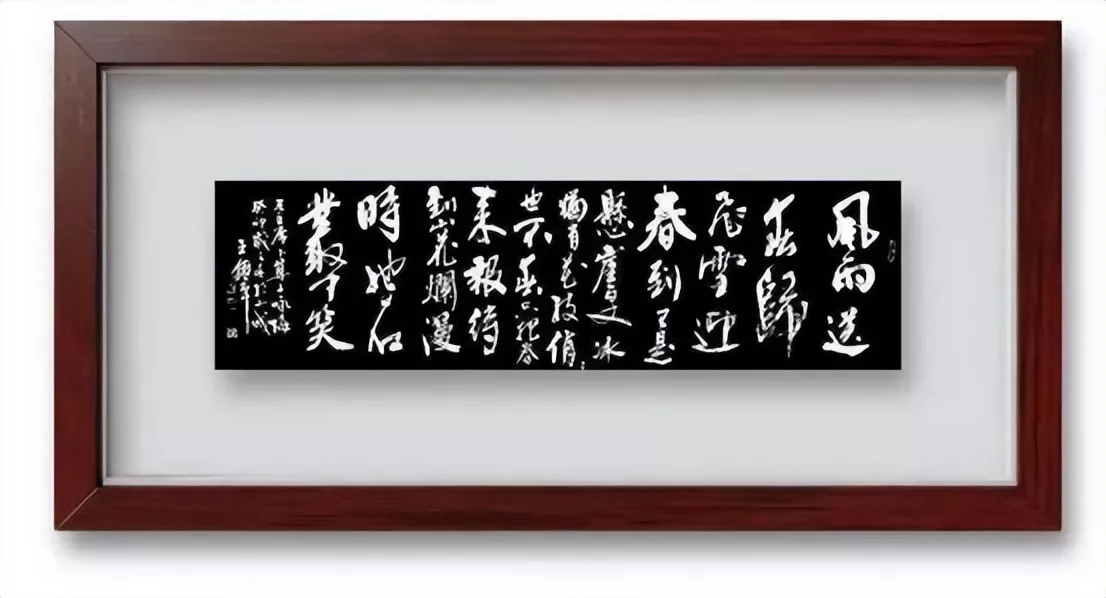 風雨送
春歸
飛雪迎
春到已是
懸崖百丈冰
猶有花枝俏
也不争春只把春
来報待
到山花爛漫
時她在
叢中笑
毛主席卜算子咏梅
癸卯歲之冬於
王